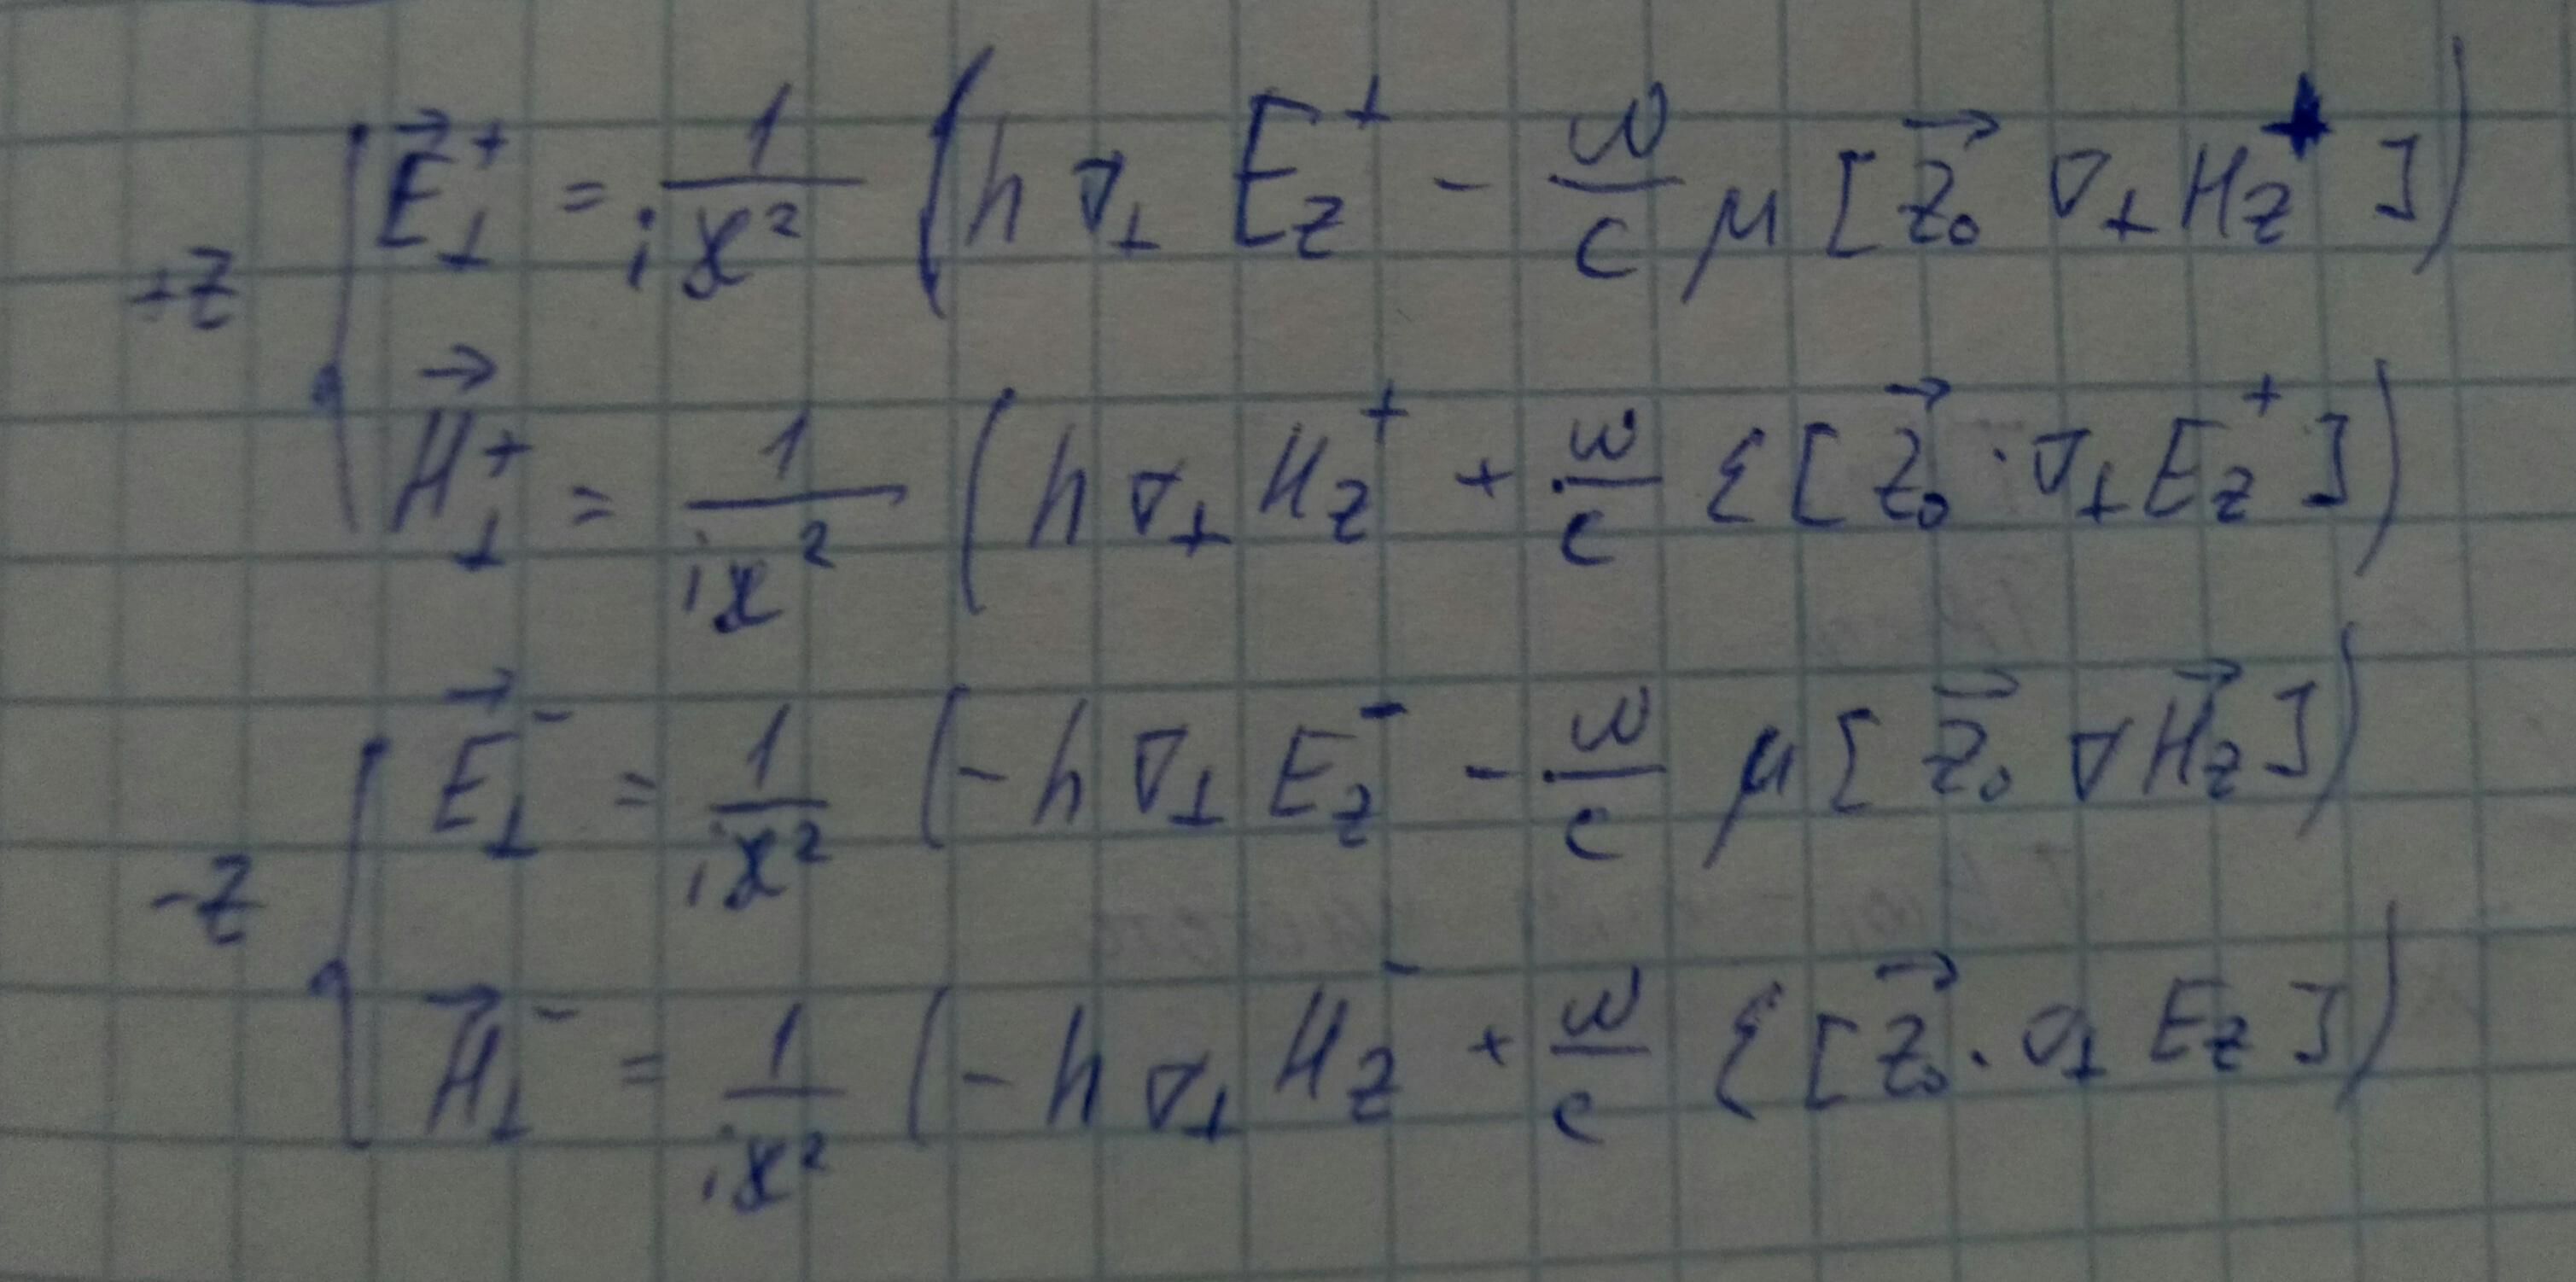 +z { E⃗⊥⁺ = 1/(iϰ²) (h ∇⊥ E_z⁺ - ω/c μ [z⃗₀ ∇⊥ H_z⁺])
H⃗⊥⁺ = 1/(iϰ²) (h ∇⊥ H_z⁺ + ω/c ε [z⃗₀ · ∇⊥ E_z⁺])
-z { E⃗⊥⁻ = 1/(iϰ²) (-h ∇⊥ E_z⁻ - ω/c μ [z⃗₀ ∇ H⃗_z])
H⃗⊥⁻ = 1/(iϰ²) (-h ∇⊥ H_z⁻ + ω/c ε [z⃗₀ · ∇⊥ E_z])